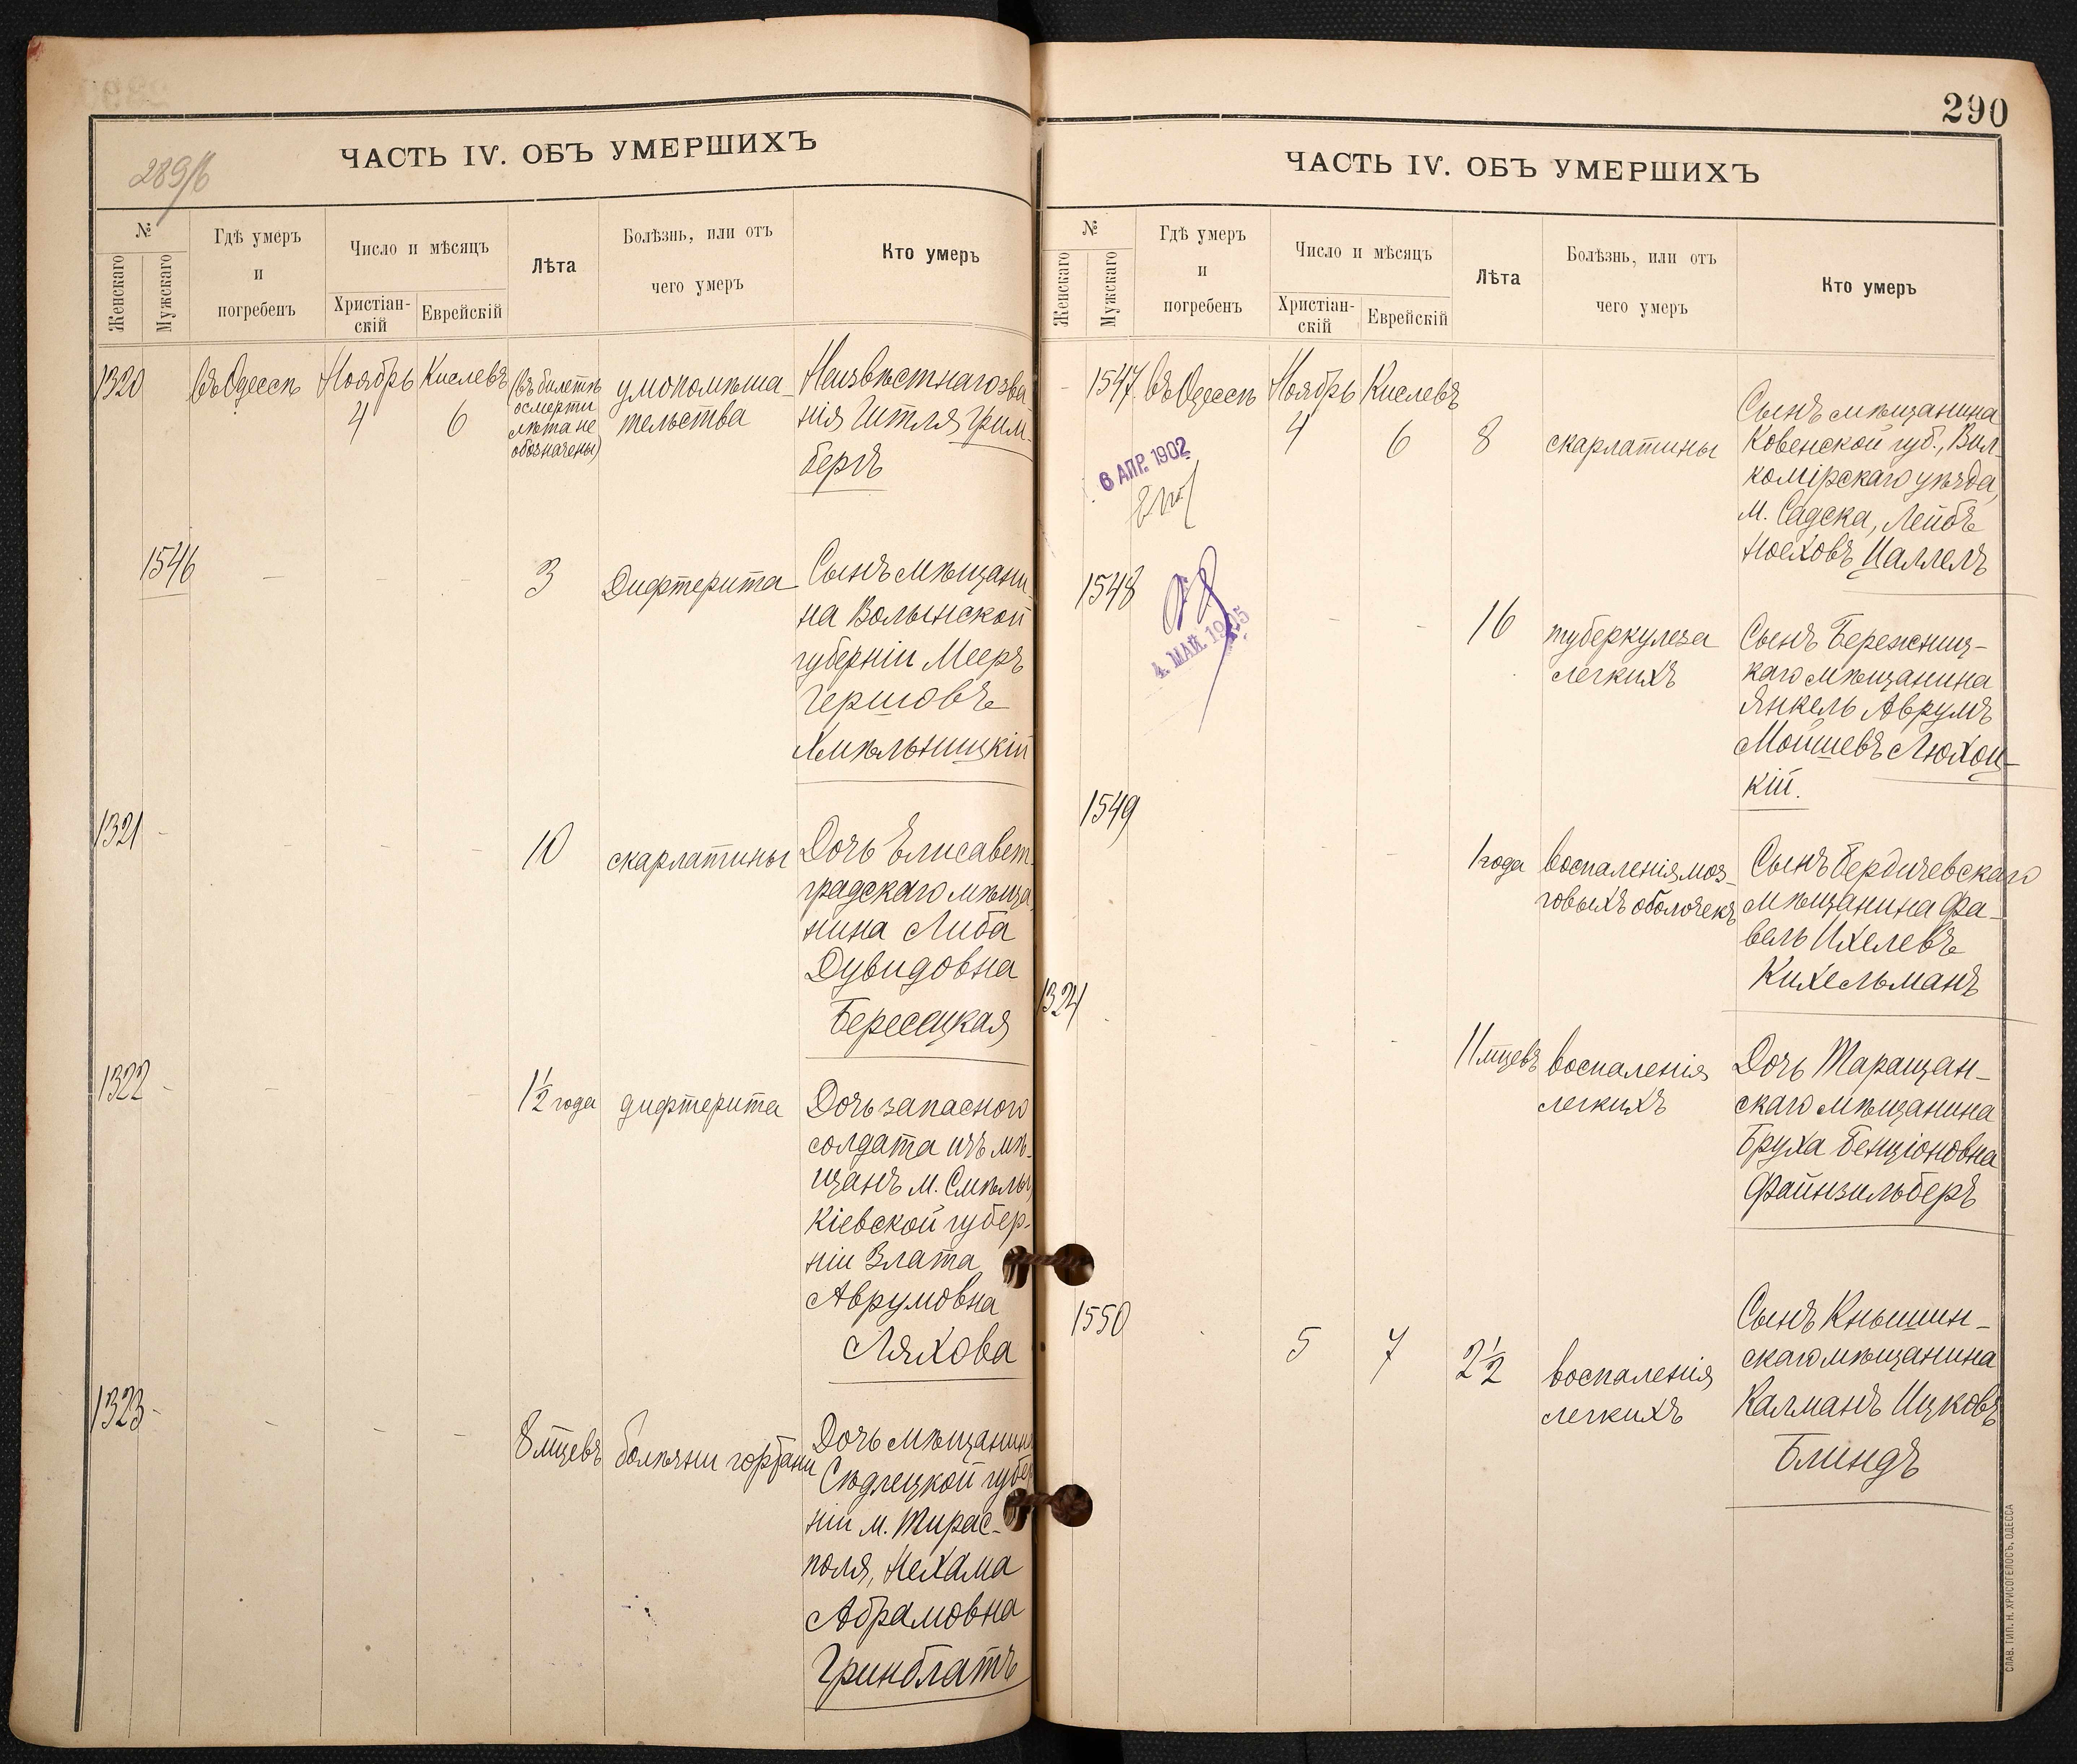 289/б
ЧАСТЬ IV. ОБЪ УМЕРШИХЪ
№
Женскаго
Мужскаго
Гдѣ умеръ
и
погребенъ
Число и мѣсяцъ
Христіан-
скій
Еврейскій
Лѣта
Болѣзнь, или отъ
чего умеръ
Кто умеръ
1320
въ Одессѣ
Ноябрь
4
Кислевъ
6
(въ билетѣ
о смерти
лѣта не
обозначены)
умопомѣша-
тельства
Неизвѣстнаго зва
нія Итля Грин-
бергъ
1546
3
Дифтерита
Сынъ мѣщани
на Волынской
губерніи Мееръ
Гершовъ
Хмѣльницкій
1321
10
скарлатины
Дочь Елисавет-
градскаго мѣща
нина Либа
Дувидовна
Бересецкая
1322
1½ года
дифтерита
Дочь запасного
солдата изъ мѣ-
щанъ м. Смѣлы
Кіевской губер-
ніи Злата
Аврумовна
Ляхова
1323
8 мцевъ
болѣзни гортани
Дочь мѣщанина
Сѣдлецкой губер
ніи м. Тирас-
поля, Нехама
Абрамовна
Гринблатъ
290
ЧАСТЬ IV. ОБЪ УМЕРШИХЪ
№
Женскаго
Мужскаго
Гдѣ умеръ
и
погребенъ
Число и мѣсяцъ
Христіан-
скій
Еврейскій
Лѣта
Болѣзнь, или отъ
чего умеръ
Кто умеръ
1547
въ Одессѣ
Ноябрь
4
Кислевъ
6
8
скарлатины
Сынъ мѣщанина
Ковенской губ., Вил-
комірскаго уѣзда,
м. Садска, Лейбъ
Ноеховъ Цаллелъ
6 АПР. 1902
1548
4. МАЙ. 1905
16
туберкулеза
легкихъ
Сынъ Бережниц-
каго мѣщанина
Янкель Аврумъ
Мойшевъ Люхоц-
кій.
1549
1 года
воспаленія моз-
говыхъ оболочекъ
Сынъ Бердичевскаго
мѣщанина Фа-
вель Ихелевъ
Кихельманъ
1324
11 мцевъ
воспаленія
легкихъ
Дочь Таращан-
скаго мѣщанина
Бруха Бенціоновна
Файнзильберъ
1550
5
7
2½
воспаленія
легкихъ
Сынъ Кнышин-
скаго мѣщанина
Калманъ Ицковъ
Блиндъ
СЛАВ. ТИП. Н. ХРИСОГЕЛОСЪ, ОДЕССА